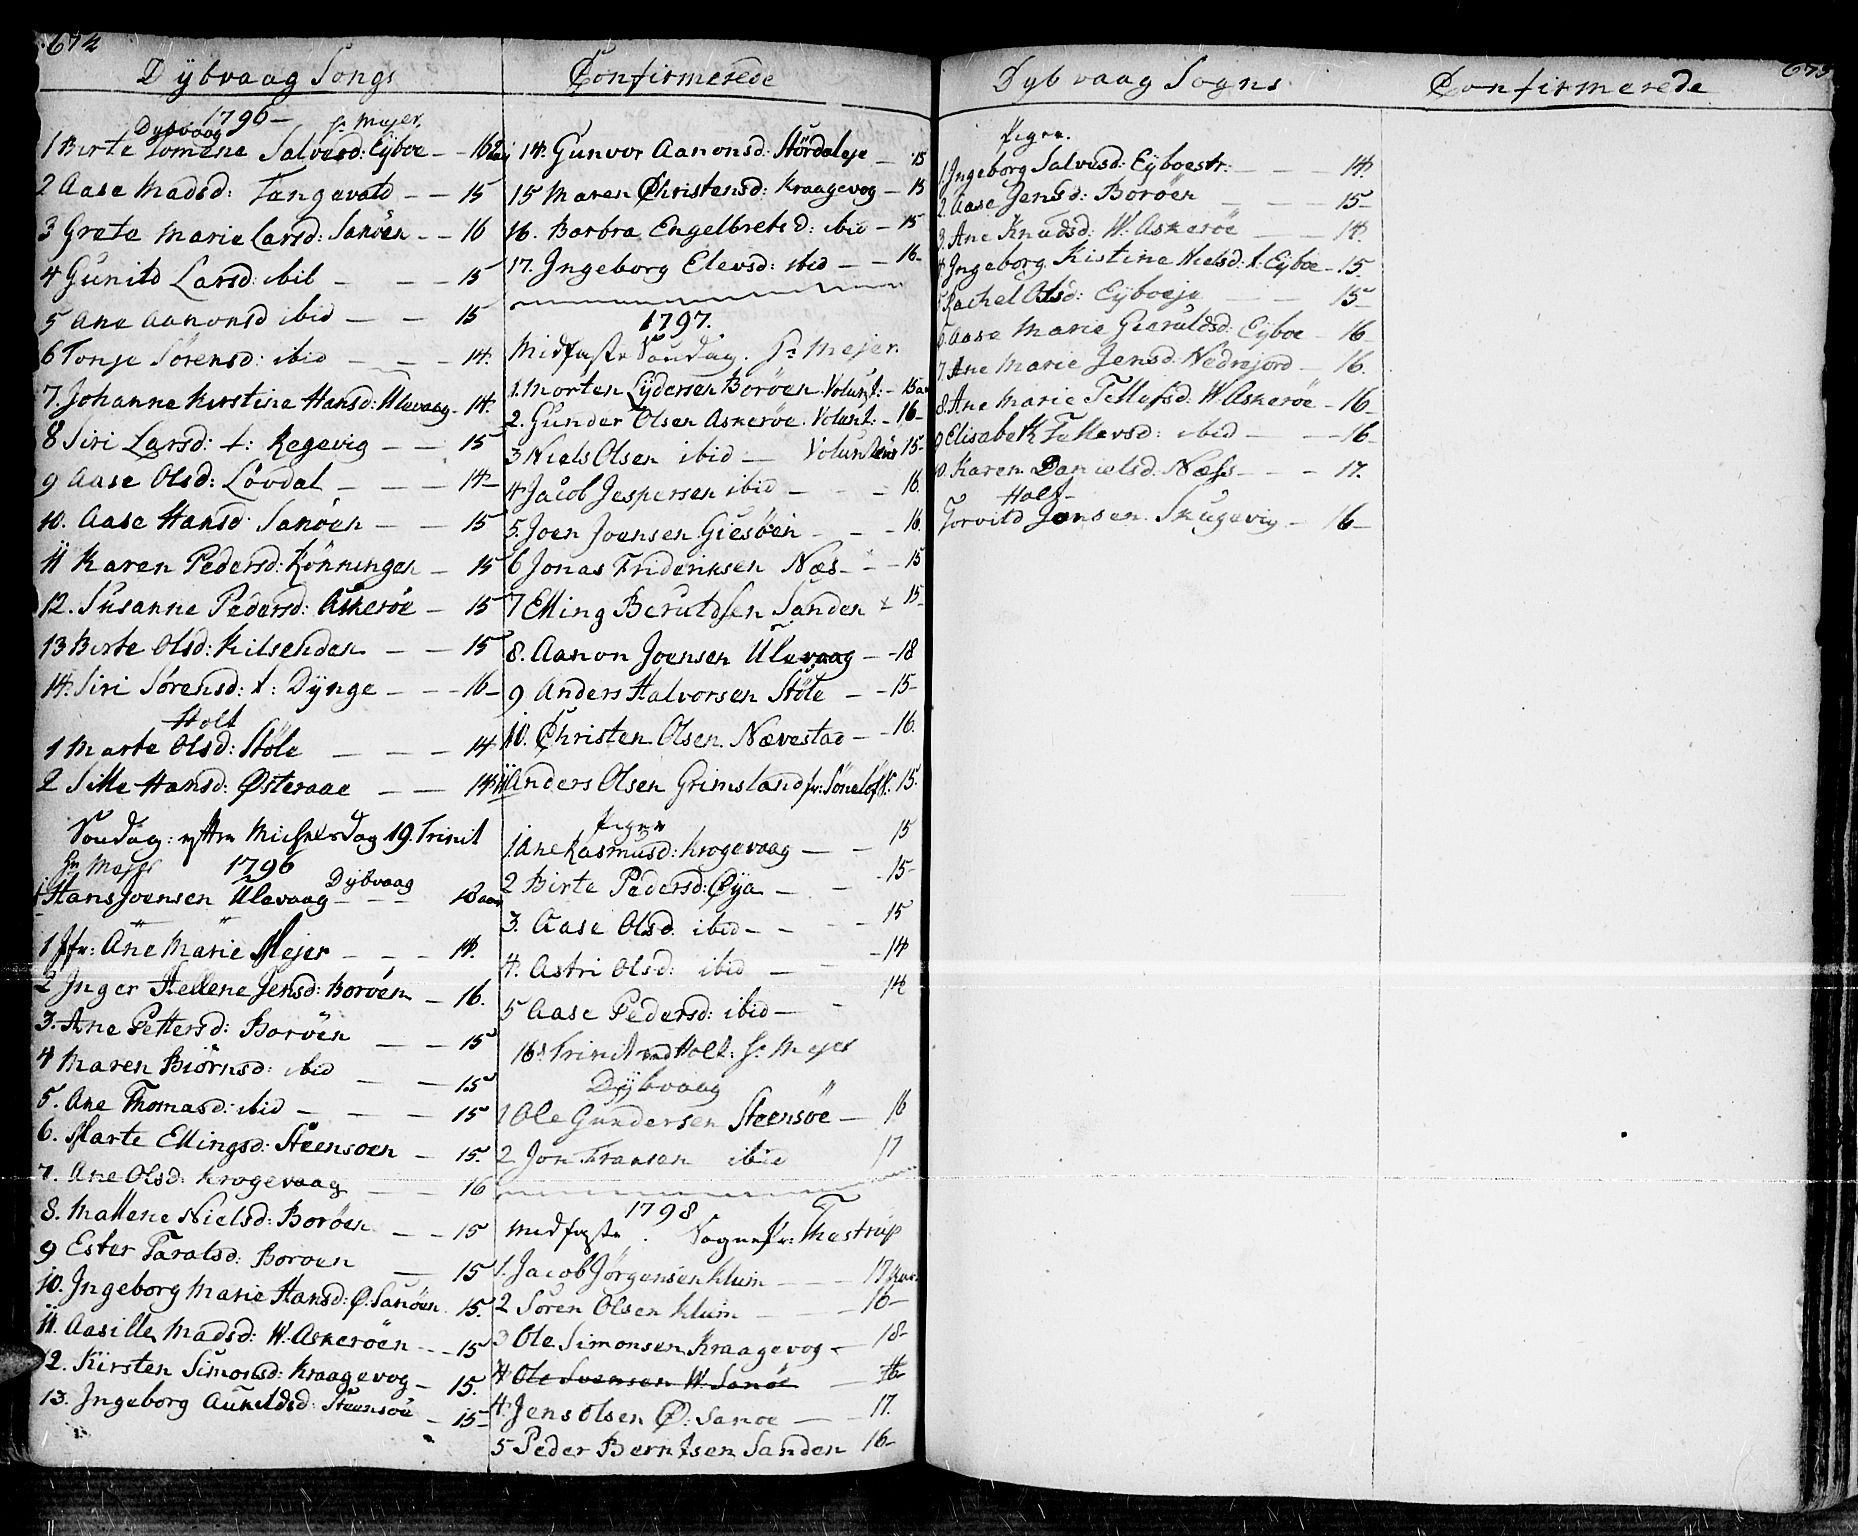 674
Dÿbvaag Songs
Confirmerede
1796 -
Dybvaag
Hr Mejer
1 Birte Tomene Salvesd: Eÿboe - 16
2 Aase Madsd: Tangevald - - 15
3 Grete Marie Larsd: Sanöen - - 16
4 Gunild Larsd: ibid - - - 15
5 Ane Aanonsd ibid - - - 15
6 Tonje Sörensd: ibid - - - 14.
7. Johanne Kirstine Hansd: Ulevaag - 14.
8 Siri Larsd: t: Kegevig - - 15
9 Aase Olsd: Lövdal - - - 14
10. Aase Hansd: Sanöen - - 15
11 Karen Pedersd: Rönningen - 15
12. Susanne Pedersd: Askeröe - 15
13 Birte Olsd: Kilsenden - - 15
14. Siri Sörensd: t: Dÿnge - - - 16
Holt
1 Marte Olsd: Stöle - - - 14
2 Sille Hansd: Østeraae - - 14
Söndag: efter Michelsdag 19. Trinit
Hr Mejer 1796
Dÿbvaag
1 Hans Joensen Ulevaag - - - 18 aar
1 Jfr: Ane Marie Mejer - - - 14.
2 Inger Hellene Jensd: Boröen - 16.
3. Ane Pettersd: Boröen - - 15
4 Maren Biörnsd: ibid - - 15
5. Ane Thomasd: ibid - - - 15
6. Marte Ellingsd: Steensöen - 15.
7. Ane Olsd: Krogevaag - - 16
8. Mallene Nielsd: Boröen - - 15
9 Ester Taralsd: Boroen - 15
10. Ingeborg Marie Hansd: Ø. Sanöen. 15.
11. Aasille Madsd: W. Askeröen - - - 15
12. Kirsten Simonsd: Kraagevog - 15.
13. Ingeborg Aukildsd: Steensöe - 15
14. Gunvor Aanonsd: Stördaleje - 15
15 Maren Christensd: Kraagevog - 15
16. Barbra Engelbretsd: ibid - 15
17. Ingeborg Elevsd: ibid - - 16
1797.
Midfaste Söndag. Hr Mejer.
1. Morten Lÿdersen Boröen. Volunt: - 15 aar
2. Gunder Olsen Askeröe. Volunt: - 16
3 Niels Olsen ibid - Voluntair 15
4 Jacob Jespersen ibid - - - 16.
5. Joen Joensen Giesöen - - - 16.
6 Jonas Frideriksen Næs - - - 15
7 Elling Berutdsen Sanden - 15
8. Aanon Joensen Ulevaag - - 18
9 Anders Halvorsen Stöle - - 15
10. Christen. Olsen. Nævestad - - 16.
11 Anders Olsen Grimsland 15.
Piger
1. Ane Rasmusd: Krogevaag - - 15
2 Birte Pedersd: Øya - - - 15
3. Aase Olsd: ibid - - - 15
4. Astri Olsd: ibid - - - 14
5 Aase Pedersd: ibid - - 14
16d Trinit ved Holt: Hr Mejer
Dÿbvaag
1 Ole Gundersen Steensöe - 16
2 Jon Fransen ibid 17
1798
Midfaste. Thestrup
1. Jacob Jörgensen Klum - - - 17 aar
2 Sören Olsen Klum - - 16
3 Ole Simonsen Kraagevog - 18
4 Ole Svensen W. Sanöe - 16
4. Jens Olsen Ø: Sanoe - - 17.
5 Peder Berntsen Sanden 16
675
Dyb vaag Sogns
Confirmerede
Pigre.
1. Ingeborg Salvesd: Eÿboestr: - - - 14.
2. Aase Jensd: Boröen - - - 15
3. Ane Knudsd: W. Askeröe - - 14.
4 Ingeborg Kistine Nielsd: t: Eÿboe - 15.
5 Rachel Olsd: Eÿboeje - - 15
6. Aase Marie Gierulsd: Eÿboe - 16
7. Ane Marie Jensd: Nedrejord - 16.
8. Ane Marie Tellefsd: W. Askeröe - 16
9 Elisabeth Tellevsd: ibid - - 16
10. Karen Danielsd: Næss - - - 17.
Holt
Torvild Jensen. Skugevig - 16